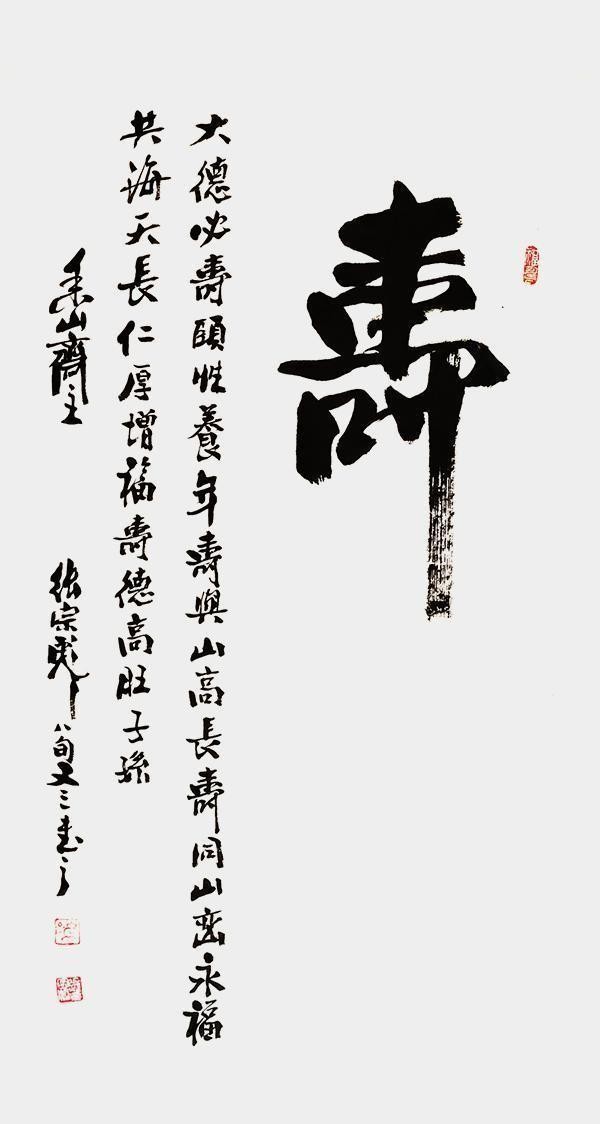 壽
大德必壽頤性養年壽與山高長壽同山巒永福
共海天長仁厚增福壽德高旺子孫
山齋主
張宗彪八旬又三書之